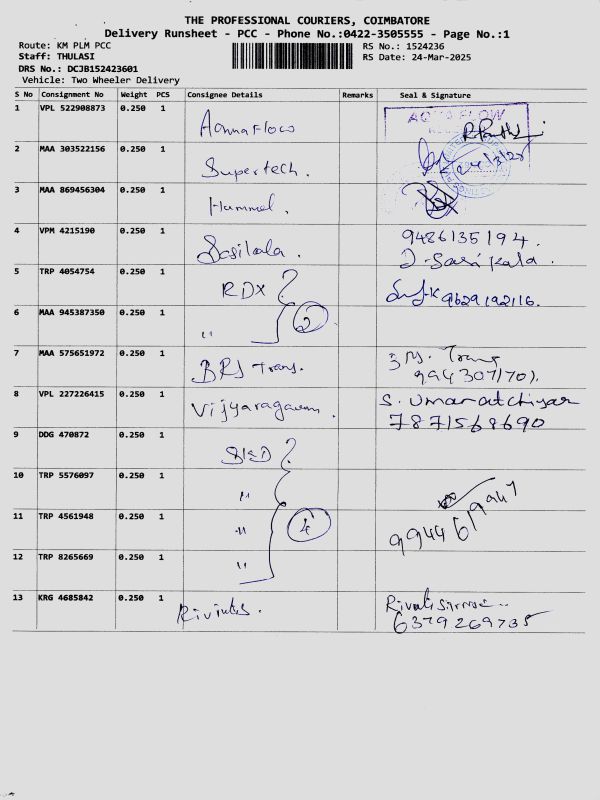 THE PROFESSIONAL COURIERS, COIMBATORE
Delivery Runsheet - PCC - Phone No.:0422-3505555 - Page No.:1
Route: KM PLM PCC RS No.: 1524236
Staff: THULASI RS Date: 24-Mar-2025
DRS No.: DCJB152423601
Vehicle: Two Wheeler Delivery
S No Consignment No Weight PCS Consignee Details Remarks Seal & Signature
1 VPL 522908873 0.250 1 AQUA FLOW
2 MAA 303522156 0.250 1 Supertech. 24/3/25
3 MAA 869456304 0.250 1 Hammel.
4 VPM 4215190 0.250 1 Sasikala. 9486135194.
J-Sasi kala.
5 TRP 4054754 0.250 1 RDX 9629192116.
6 MAA 945387350 0.250 1 " 2
7 MAA 575651972 0.250 1 BRS Trans. Trans
9943071701.
8 VPL 227226415 0.250 1 Vijyaragavan. S. Umar atchiyar
7871568690
9 DDG 470872 0.250 1 SKD
10 TRP 5576097 0.250 1 "
11 TRP 4561948 0.250 1 " 4 9944619947
12 TRP 8265669 0.250 1 "
13 KRG 4685842 0.250 1
6379269735